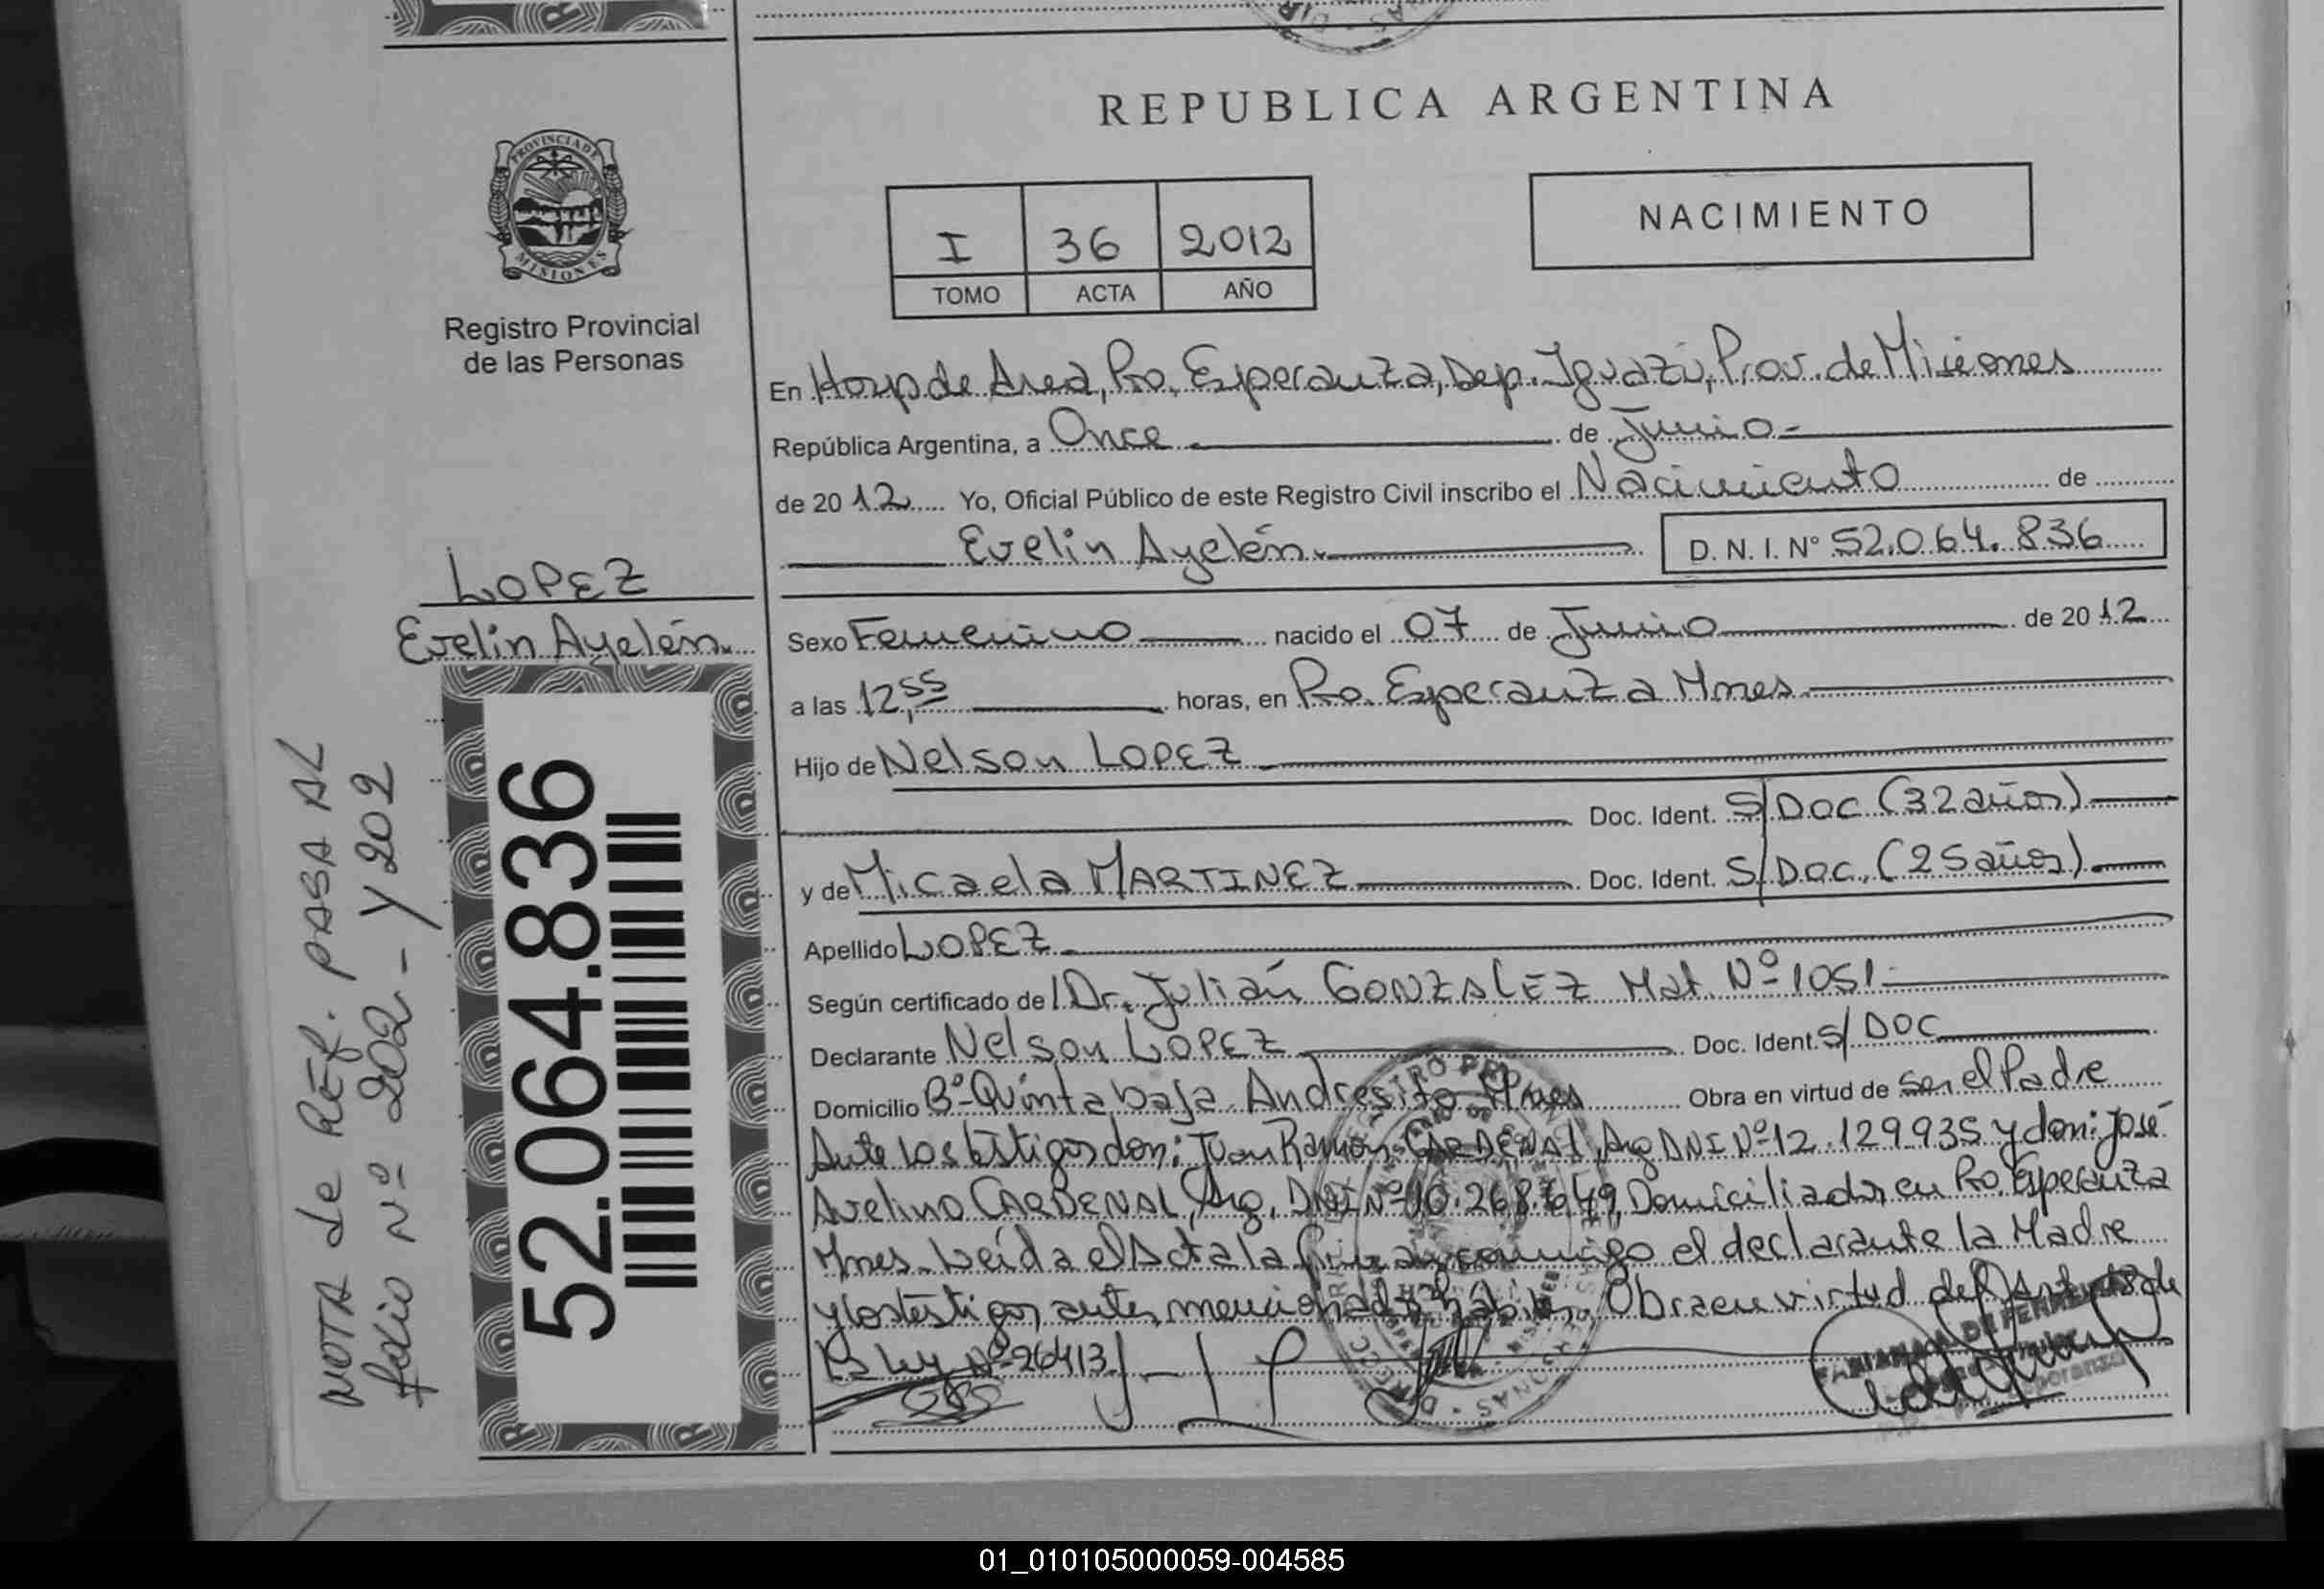 REPUBLICA ARGENTINA
PROVINCIA DE
MISIONES
Registro Provincial
de las Personas
I 36 2012
TOMO ACTA AÑO
NACIMIENTO
En Hosp de Area, Pto. Esperanza, Dep. Iguazú, Prov. de Misiones
República Argentina, a Once de Junio
de 20 12 Yo, Oficial Público de este Registro Civil inscribo el Nacimiento de
Evelin Ayelén. D. N. I. Nº 52.064.836
LOPEZ
Evelin Ayelén
Sexo Femenino nacido el 07 de Junio de 20 12
a las 12,55 horas, en Pto. Esperanza Mnes
Hijo de Nelson LOPEZ
Doc. Ident. S/DOC (32 años)
y de Micaela MARTINEZ Doc. Ident. S/DOC. (25 años)
Apellido LOPEZ
Según certificado de Dr. Julián GONZALEZ Mat. Nº 1051
Declarante Nelson LOPEZ Doc. Ident. S/DOC
Domicilio Bº Quinta baja Andresito Mnes Obra en virtud de ser el Padre
Ante los testigos don: Juan Ramón CARDENAL, Arg DNI Nº 12.129935 y don: José
Avelino CARDENAL, Arg. DNI Nº 10.268.649, Domiciliados en Pto. Esperanza
Mnes. Leída el Acta la firman conmigo el declarante la Madre
y los testigos antes mencionados hábiles. Obra en virtud del Art. 18 de
la Ley Nº 26413
52.064.836
NOTA de REF. PASA AL
folio Nº 202 - Y 202
01_010105000059-004585